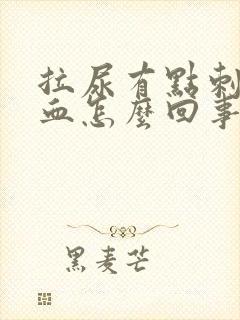 拉尿有點刺
血怎麼回事
黑麦芒